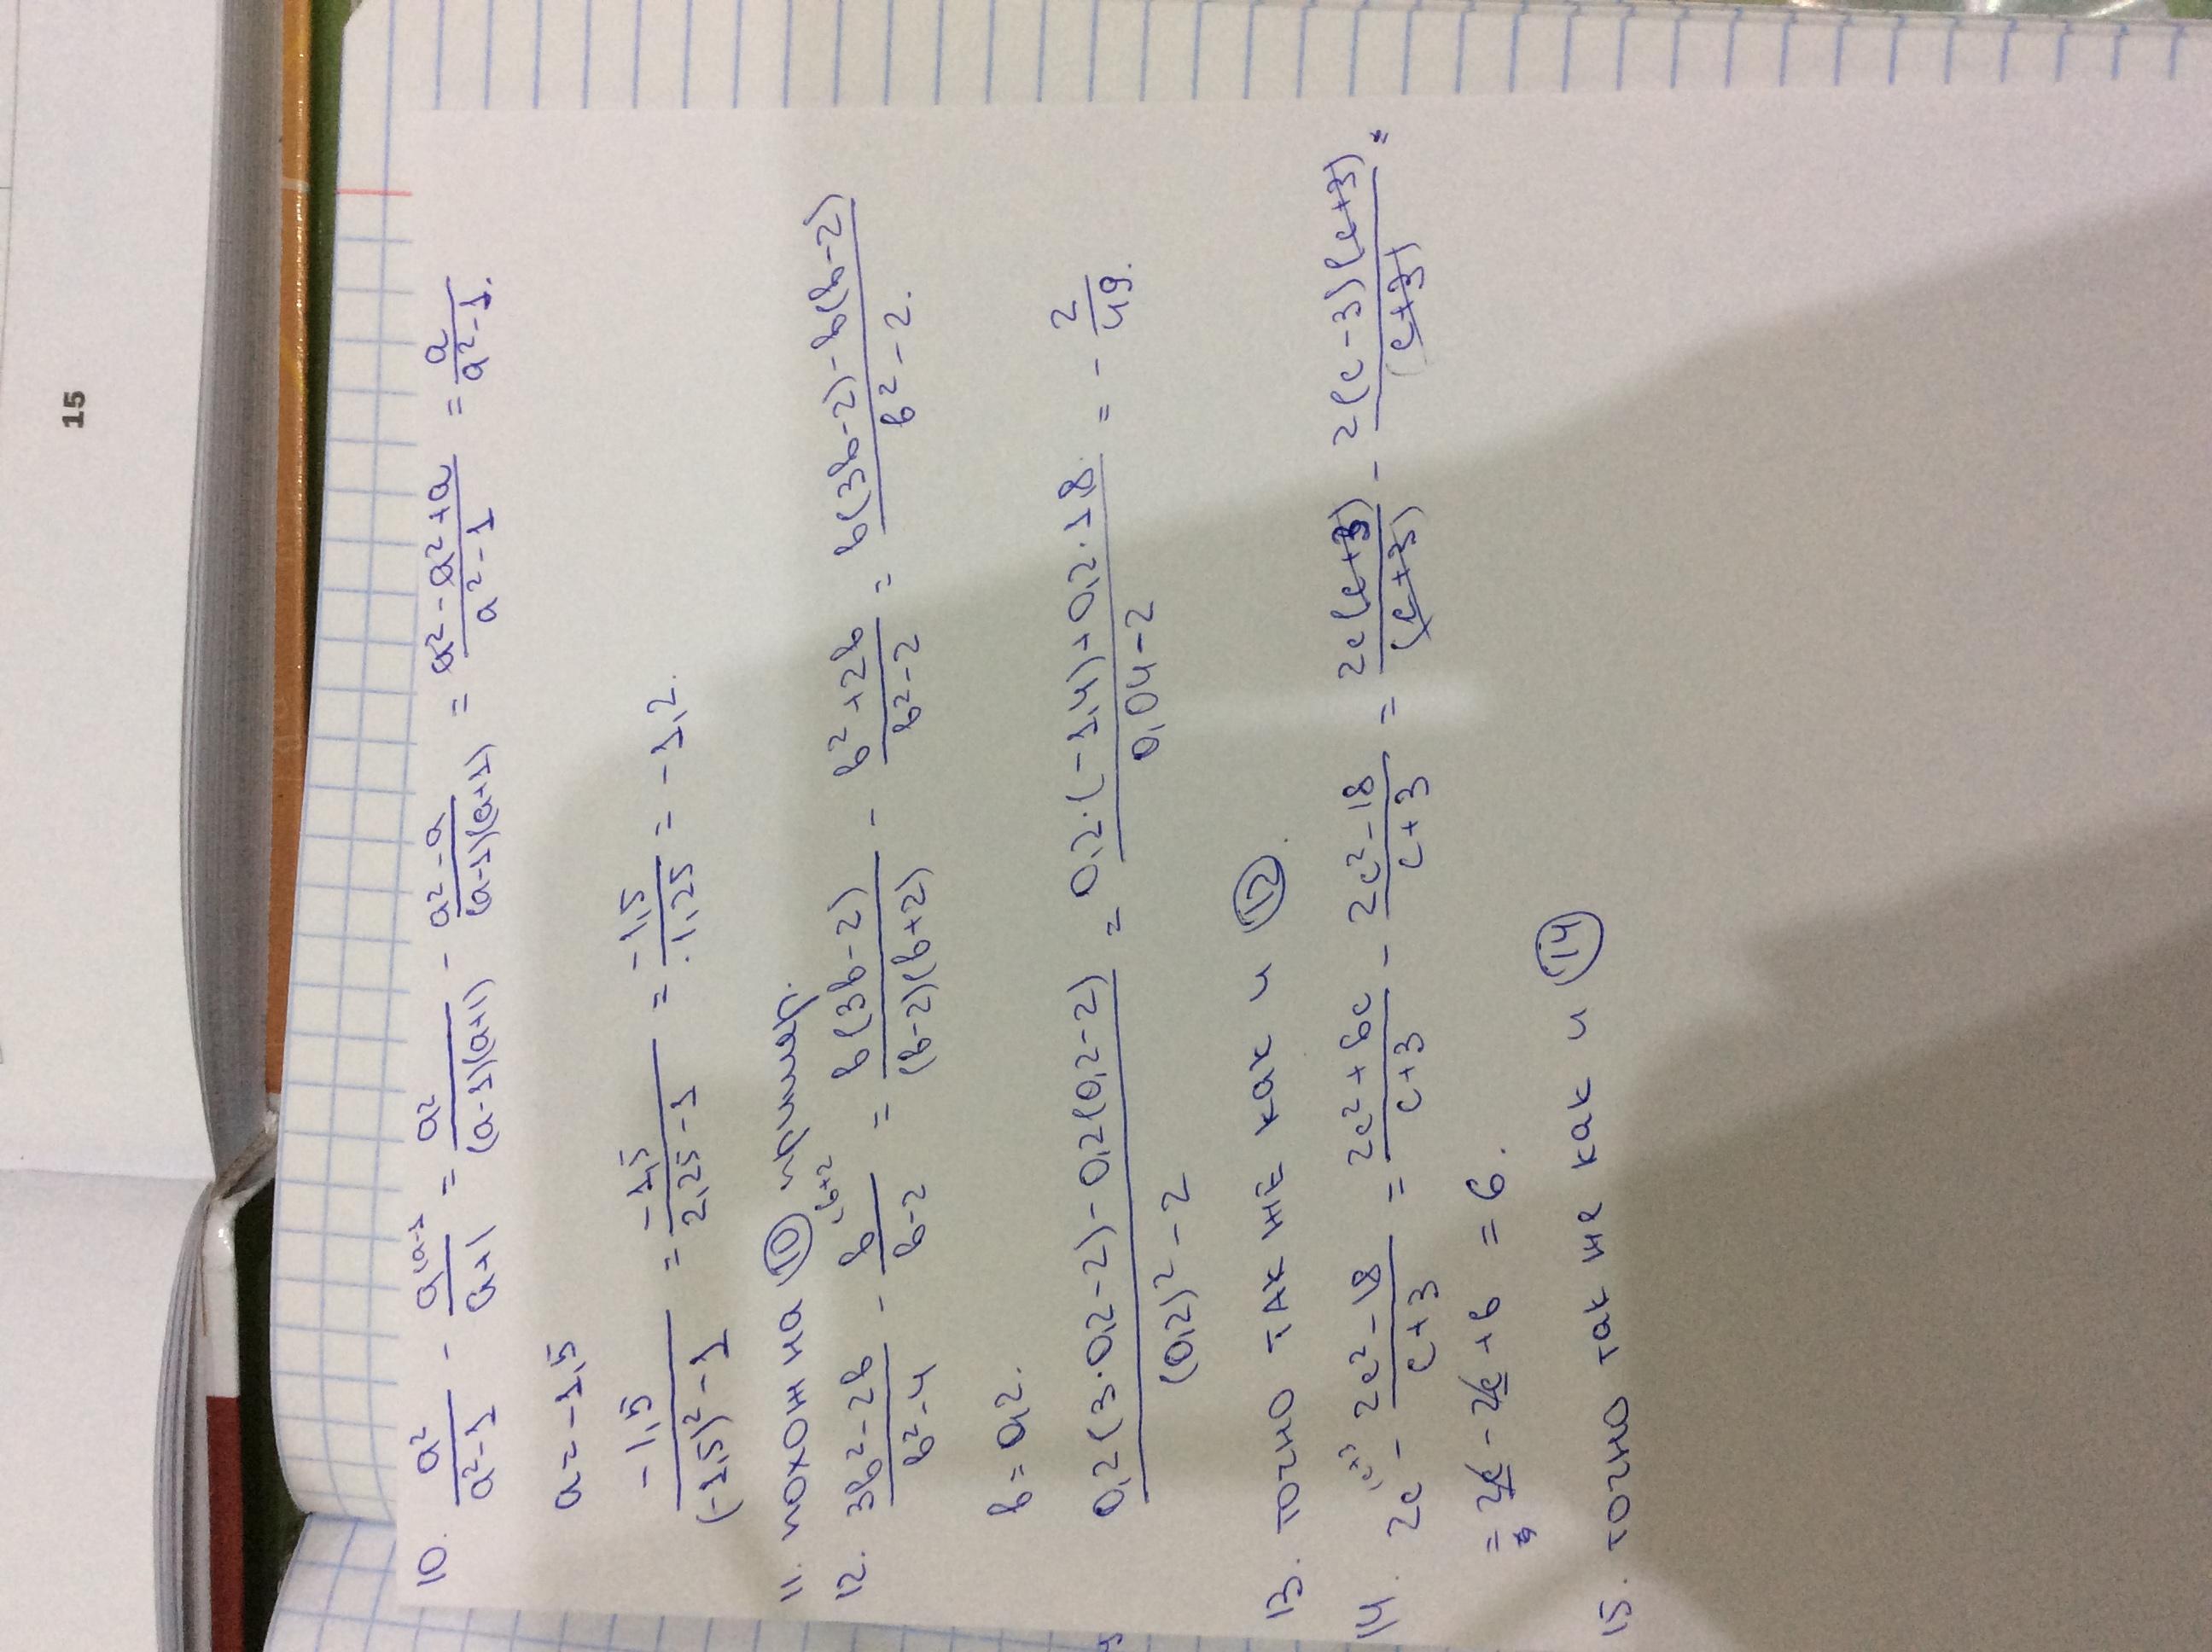 15
10. a²/(a²-1) - a^(a-1)/(a+1) = a²/((a-1)(a+1)) - (a²-a)/((a-1)(a+1)) = (a²-a²+a)/(a²-1) = a/(a²-1).
a = -1,5
-1,5/((-1,5)²-1) = -1,5/(2,25-1) = -1,5/1,25 = -1,2.
11. похож на ⑩ пример.
12. (3b²-2b)/(b²-4) - b^(b+2)/(b-2) = b(3b-2)/((b-2)(b+2)) - (b²+2b)/(b²-2) = (b(3b-2)-b(b-2))/(b²-2).
b = 0,2.
(0,2(3·0,2-2)-0,2(0,2-2))/((0,2)²-2) = (0,2·(-1,4)+0,2·1,8)/(0,04-2) = -2/49.
13. точно так же как и ⑫.
14. 2c^(c+3) - (2c²-18)/(c+3) = (2c²+6c)/(c+3) - (2c²-18)/(c+3) = 2c(c+3)/(c+3) - 2(c-3)(c+3)/(c+3) =
= 2c - 2c + 6 = 6.
15. точно так же как и ⑭